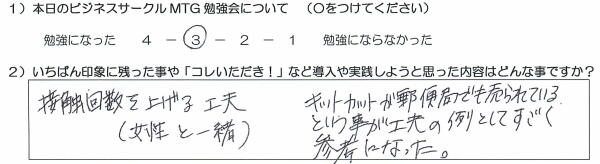 1）本日のビジネスサークルMTG勉強会について　（○をつけてください）
勉強になった　4　－　3　－　2　－　1　勉強にならなかった
2）いちばん印象に残った事や「コレいただき！」など導入や実践しようと思った内容はどんな事ですか？
接触回数を上げる工夫
（女性と一緒）
キットカットが郵便局でも売られている
という事が工夫の例としてすごく
参考になった。